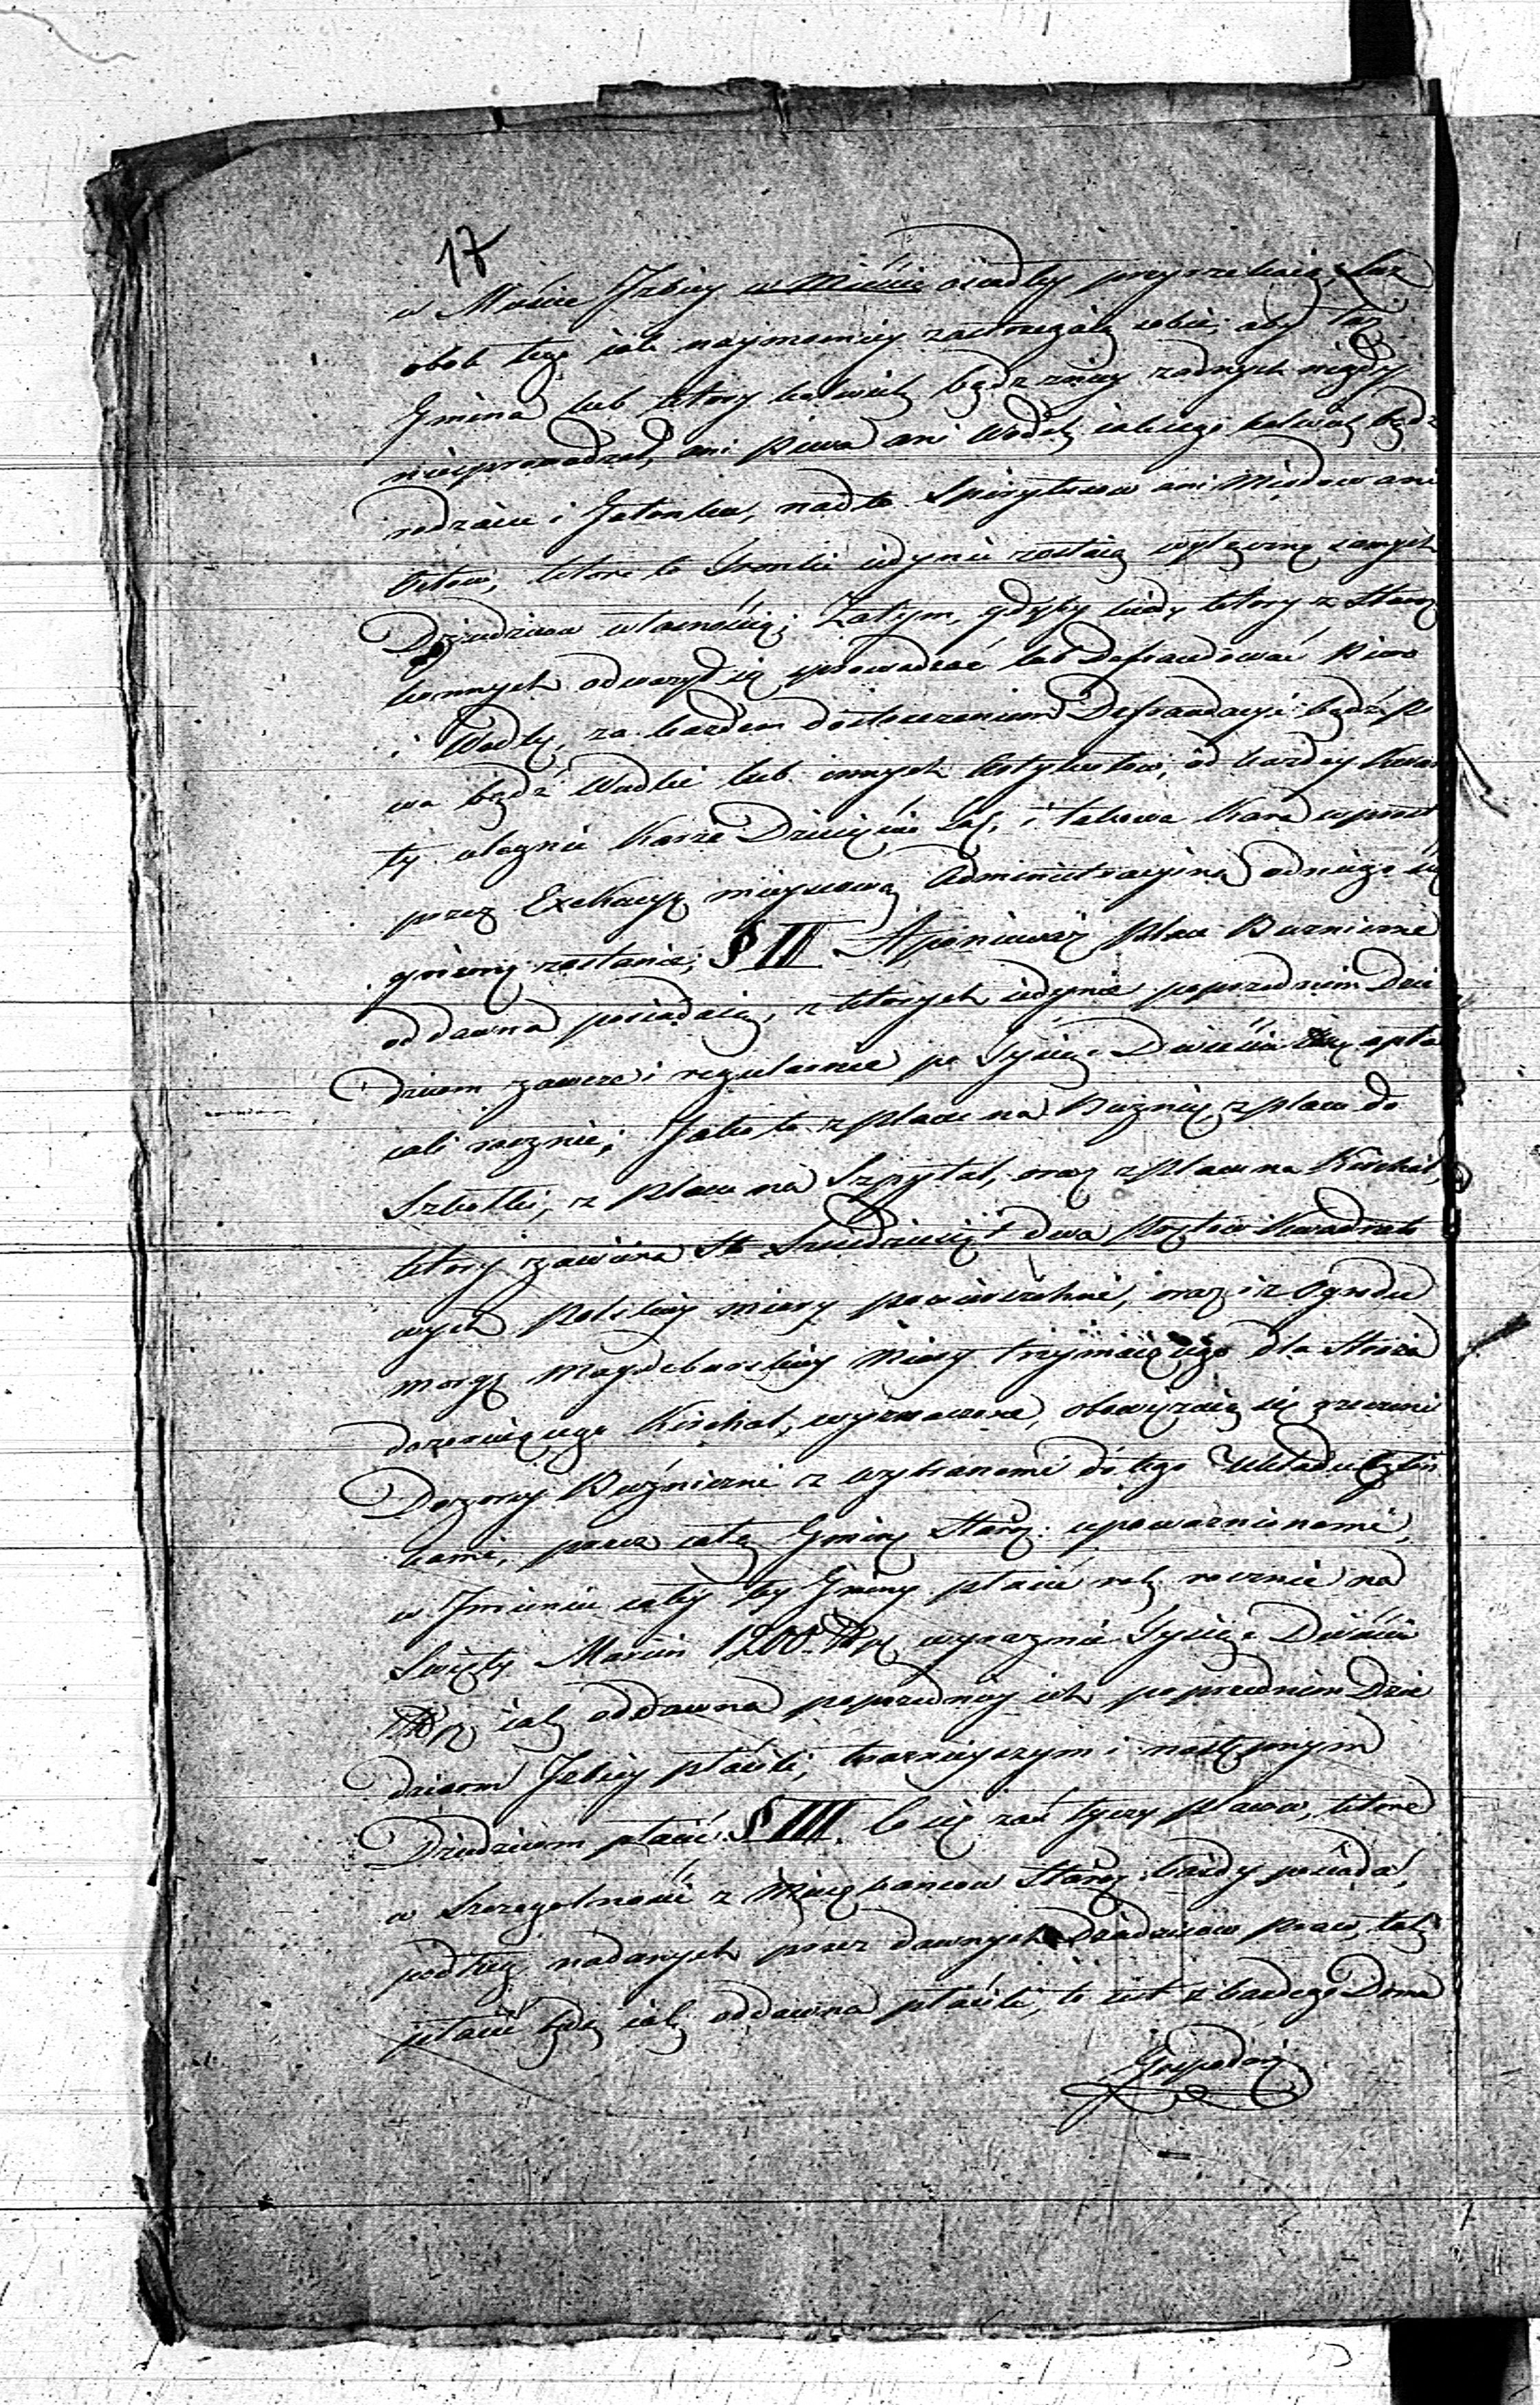 17
w Mieście Izbicy w Mieście osiadłey przyrzekaią, lecz
obok tego iak naymocniey zastrzegaią sobie, aby taż
Gmina lub który kolwiek bądz z niey żadnych nigdy
niesprowadzał, ani Piwa ani Wodek iakiego kolwiek bądz
rodzaiu i Gatunku, nadto Spirytusow ani Miodow ani
które to Trunki iedynie zostaią wyłączną samych
Dziedzicow własnością; Zatym, gdyby kiedy który z Staro
konnych odważył się sprowadzać lub defraudować Piwo
i Wodkę, za każdem dostrzeżeniem Defraudacyi bądź Pi
wa bądź Wodki lub innych Artykułow, od każdey Kwar
ty ulegnie Karze Dziesięciu i takowa Kara wprost
przez Exekucyą mieyscową Administracyiną od niego ścią
gnioną zostanie; § II A ponieważ Place Bużnicze
oddawna posiadaią, z których iedynie poprzednim Dzie
dzicom zawsze i regularnie po Tysiąc Dwieście opła
cali rocznie; Jako to z Placu na Bużnicę, z placu do
Szkołki, z Placu na Szpytal, oraz z Placu na Kirchol,
który zawiera Sto dwa Prętow Kwadrato
wych Polskiey miary powierzchni, oraz i z Ogrodu
morgę Magdeburskiey Miary trzymaiącego dla Stróża
dozoruiącego Kirchol, wyznaczone, obowięzuią się rzeczeni
Dozorcy Bużniczni z wybranemi do tego Układu Człon
kami, przez całą Gminę Staroz: upoważnionemi,
w Imieniu całey tey Gminy płacić rok rocznie na
Swięty Marcin 1200 wyraznie Tysiąc Dwieście
iak oddawna poprzedniey ich poprzednim Dzie
dzicom Izbicy płacili, teraznieyszym i następnym
Dziedzicom płacić. § III. Co się zaś tyczy placow, które
w Szczegolności z Mieszkancow Staroz: każdy posiada,
podług nadanych przez dawnych Dziedzicow praw, tak
płacić będą iak oddawna płacili, to iest z każdego Domu
Gospodarz